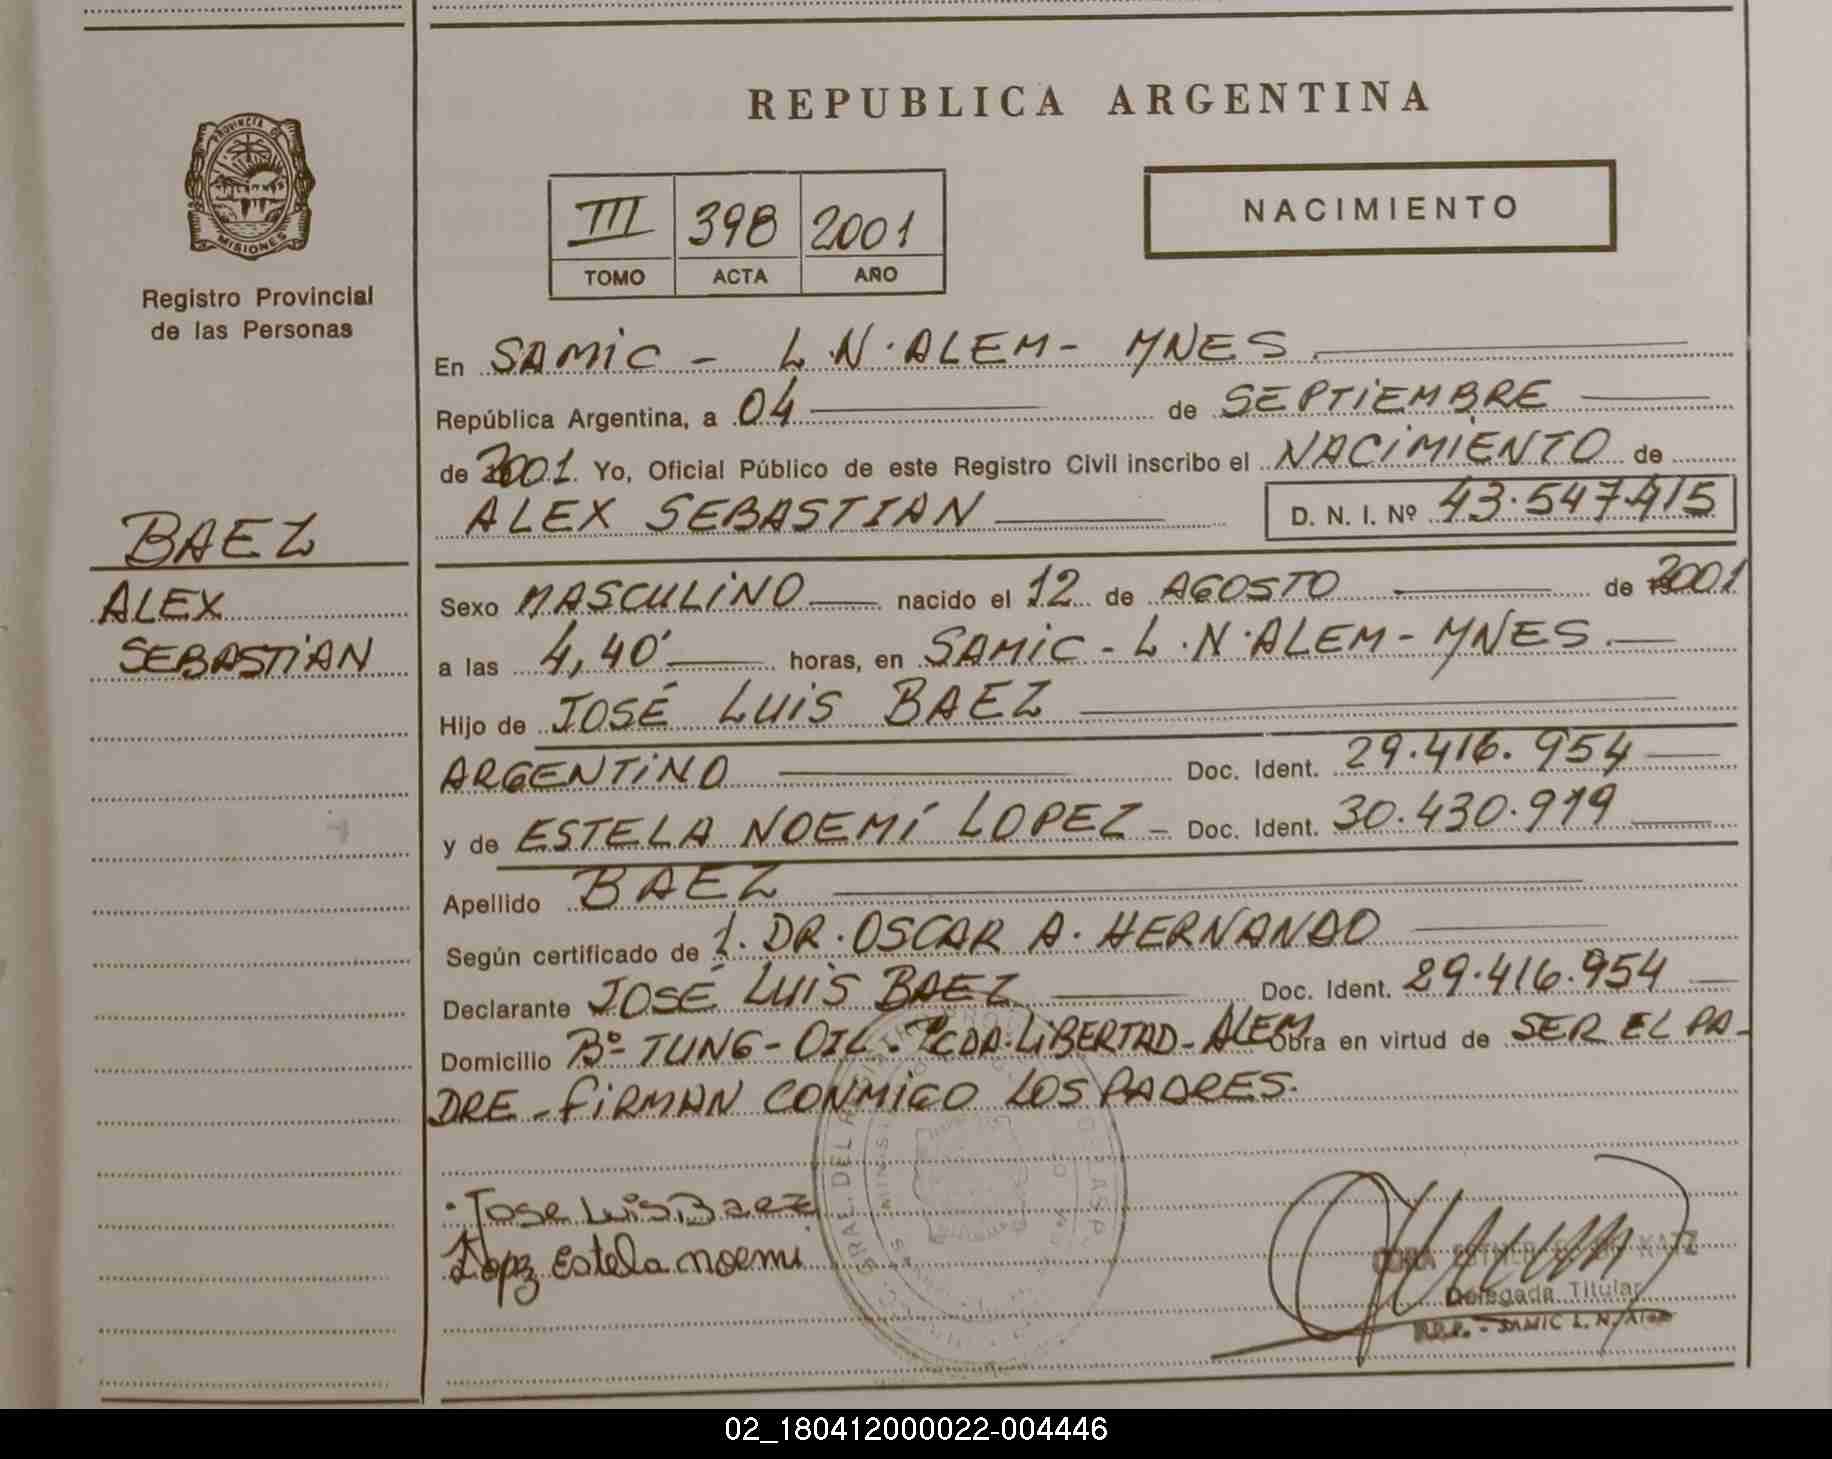 REPUBLICA ARGENTINA
PROVINCIA DE
MISIONES
Registro Provincial
de las Personas
III 398 2001
TOMO ACTA AÑO
NACIMIENTO
BAEZ
ALEX
SEBASTIAN
En SAMIC - L.N.ALEM- MNES
República Argentina, a 04 de SEPTIEMBRE
de 2001. Yo, Oficial Público de este Registro Civil inscribo el NACIMIENTO de
ALEX SEBASTIAN D. N. I. Nº 43.547.415
Sexo MASCULINO nacido el 12 de AGOSTO de 2001
a las 4,40' horas, en SAMIC - L.N.ALEM - MNES.
Hijo de JOSÉ LUIS BAEZ
ARGENTINO Doc. Ident. 29.416.954
y de ESTELA NOEMÍ LOPEZ - Doc. Ident. 30.430.979
Apellido BAEZ
Según certificado de 1. DR. OSCAR A. HERNANDO
Declarante JOSÉ LUIS BAEZ Doc. Ident. 29.416.954
Domicilio Bº TUNG-OIL. PCDA.LIBERTAD-ALEM Obra en virtud de SER EL PA-
DRE - FIRMAN CONMIGO LOS PADRES.
Jose Luis Baez
Lopez Estela noemi
KATZ
Delegada Titular
SAMIC L. N.
02_180412000022-004446